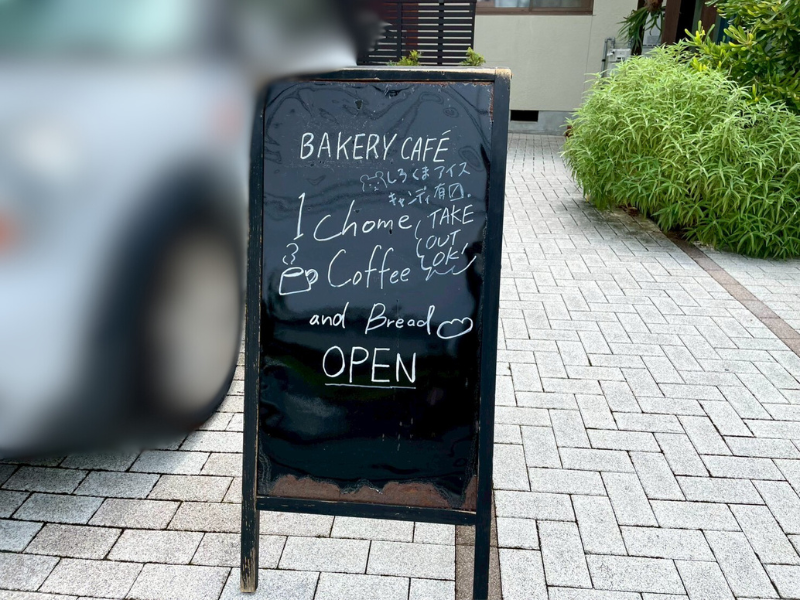 BAKERY CAFÉ
しろくまアイス
キャンディ有り〼。
1 Chome
TAKE
OUT
OK!
Coffee
and Bread
OPEN